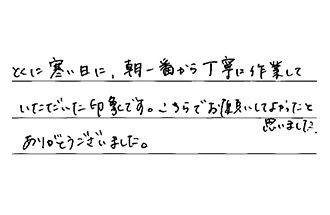 とくに寒い日に、朝一番から丁寧に作業して
いただいた印象です。こちらでお願いしてよかったと
思いました。
ありがとうございました。